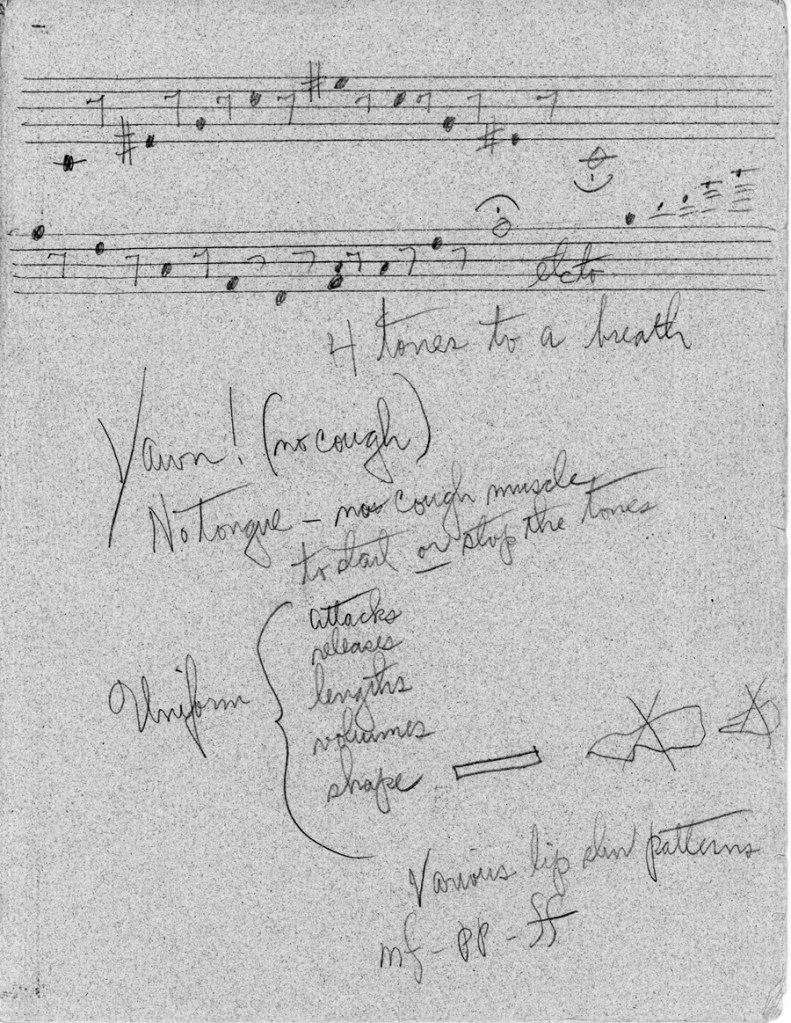 4 tones to a breath
Yawn! (no cough)
No tongue – no cough muscle
to start or stop the tones
Uniform
attacks
releases
lengths
volumes
shape
Various lip slur patterns
mf – pp – ff